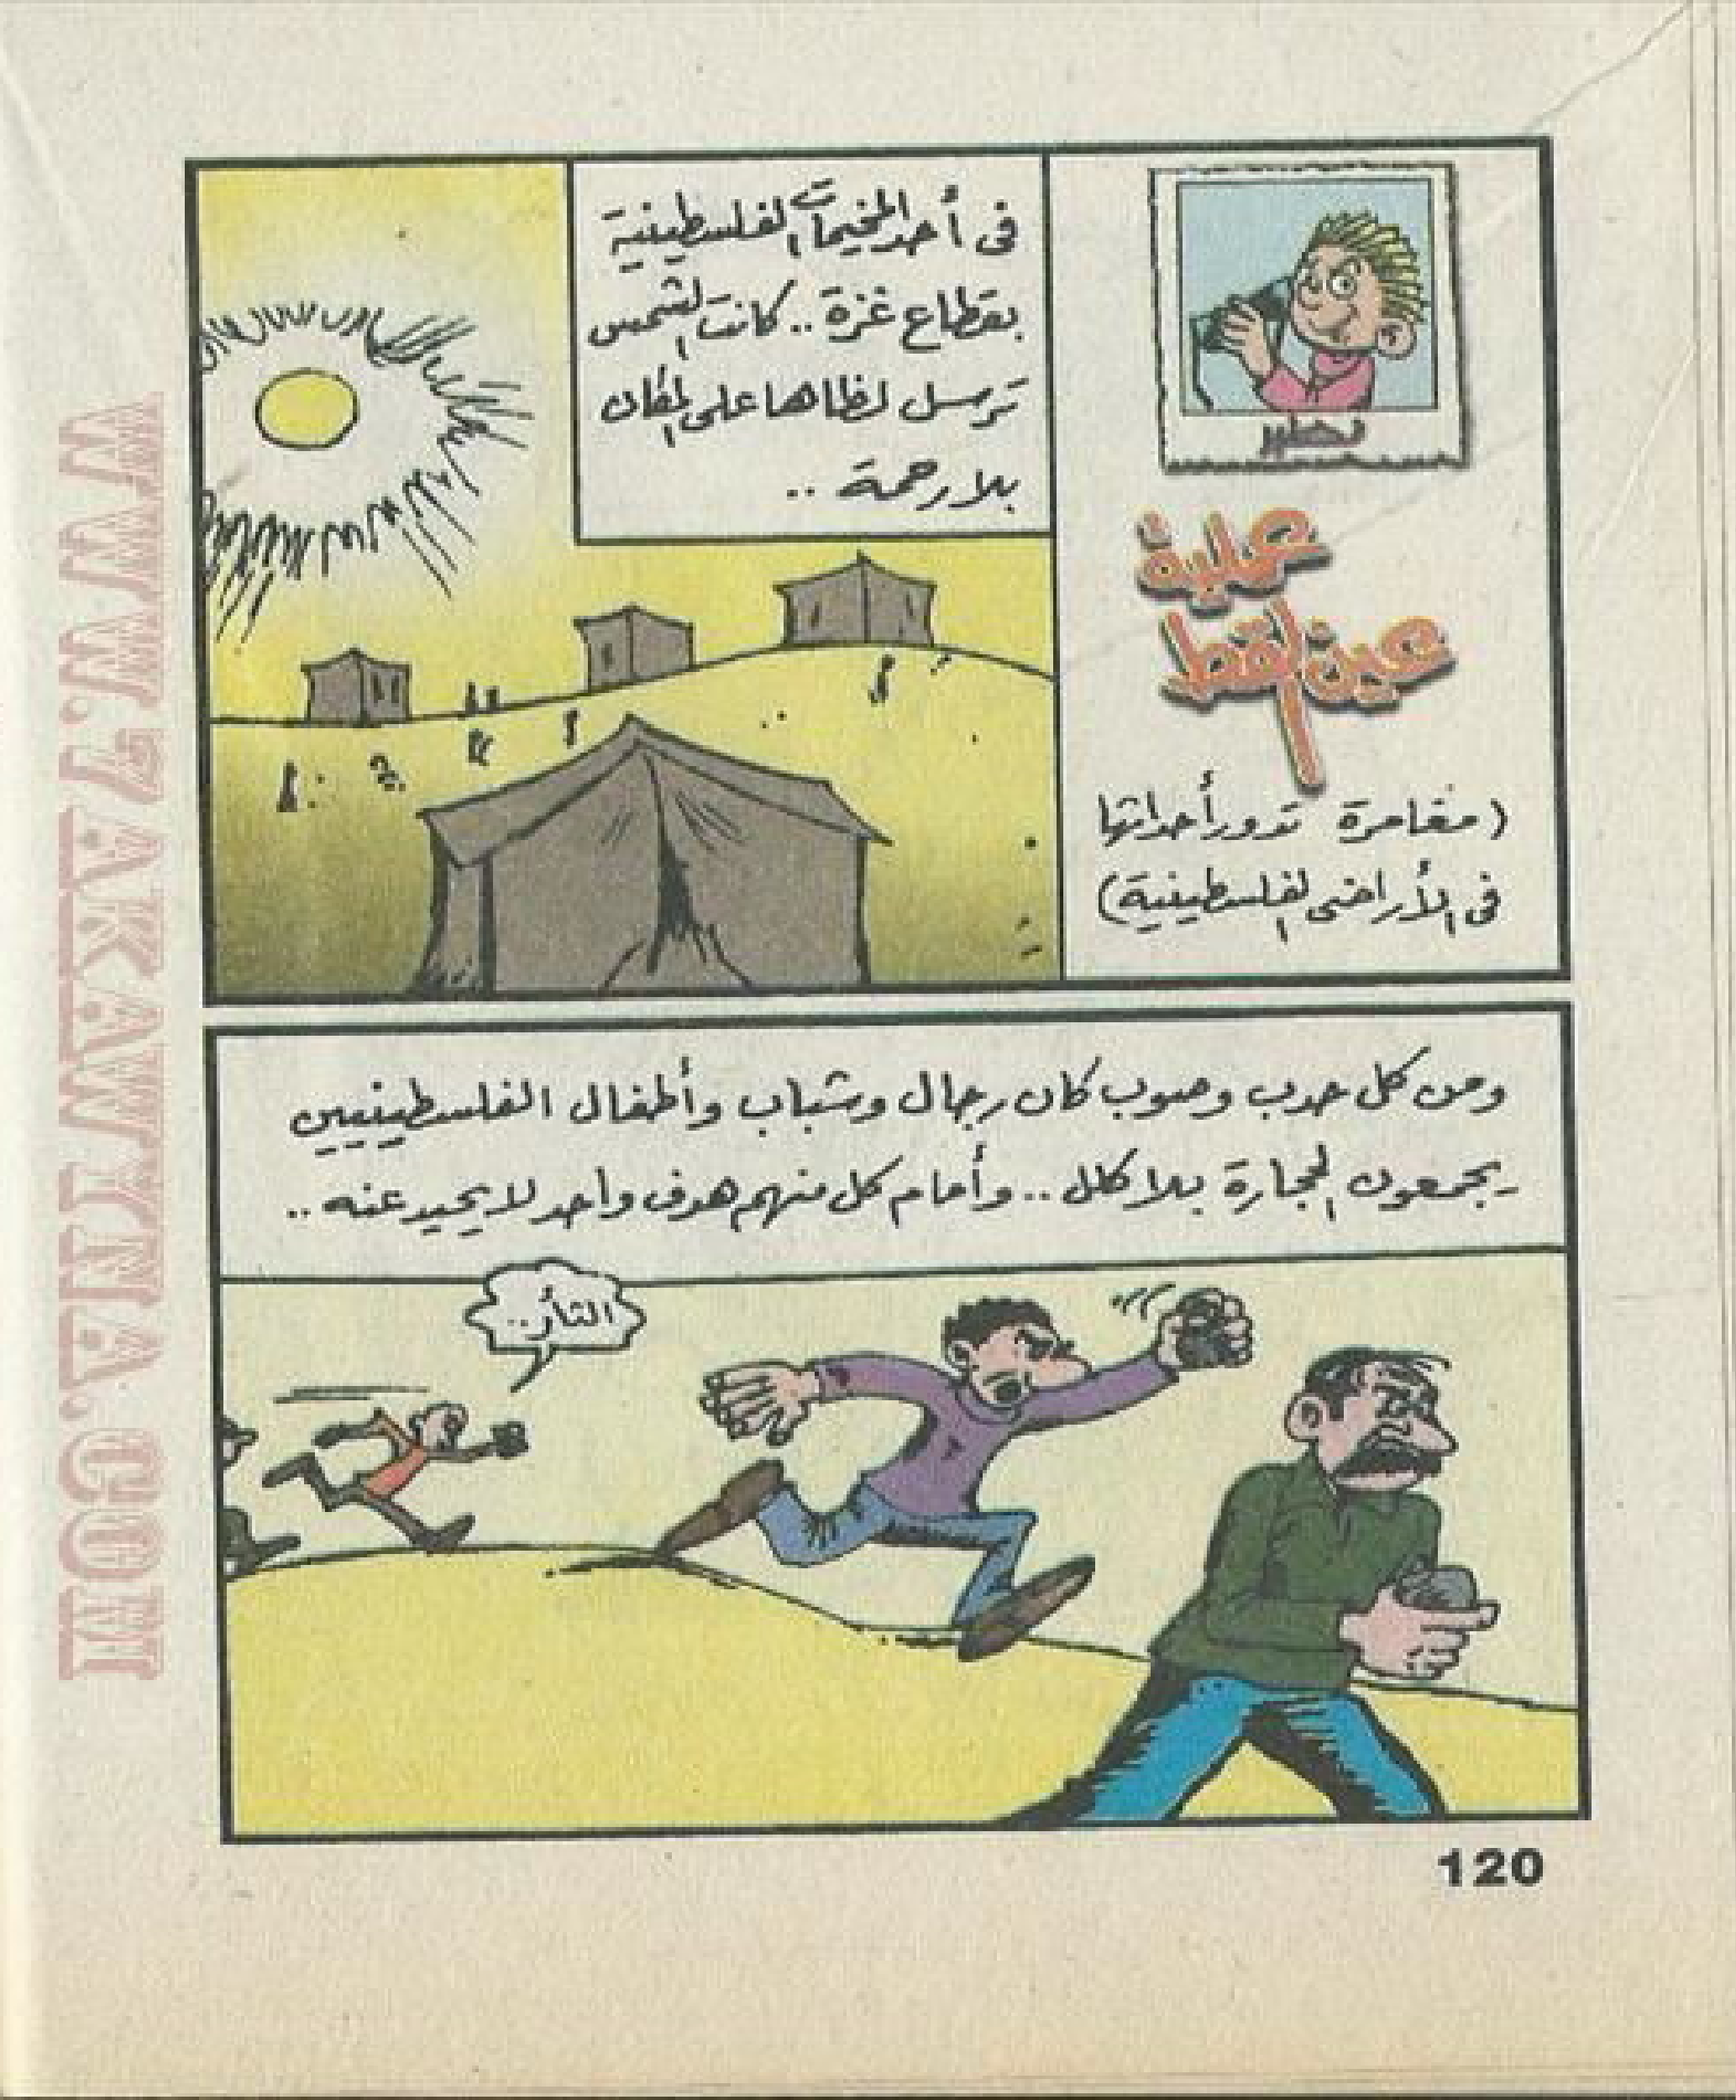 خطير
عملية
عين القط
(مغامرة تدور أحداثها
فى الأراضى الفلسطينية)
فى أحد المخيمات الفلسطينية
بقطاع غزة .. كانت الشمس
ترسل لظاها على المكان
بلا رحمة ..
ومن كل حدب وصوب كان رجال وشباب وأطفال الفلسطينيين
يجمعون الحجارة بلا كلل .. وأمام كل منهم هدف واحد لا يحيد عنه ..
الثأر ..
120
WWW.7AKAWITNA.COM